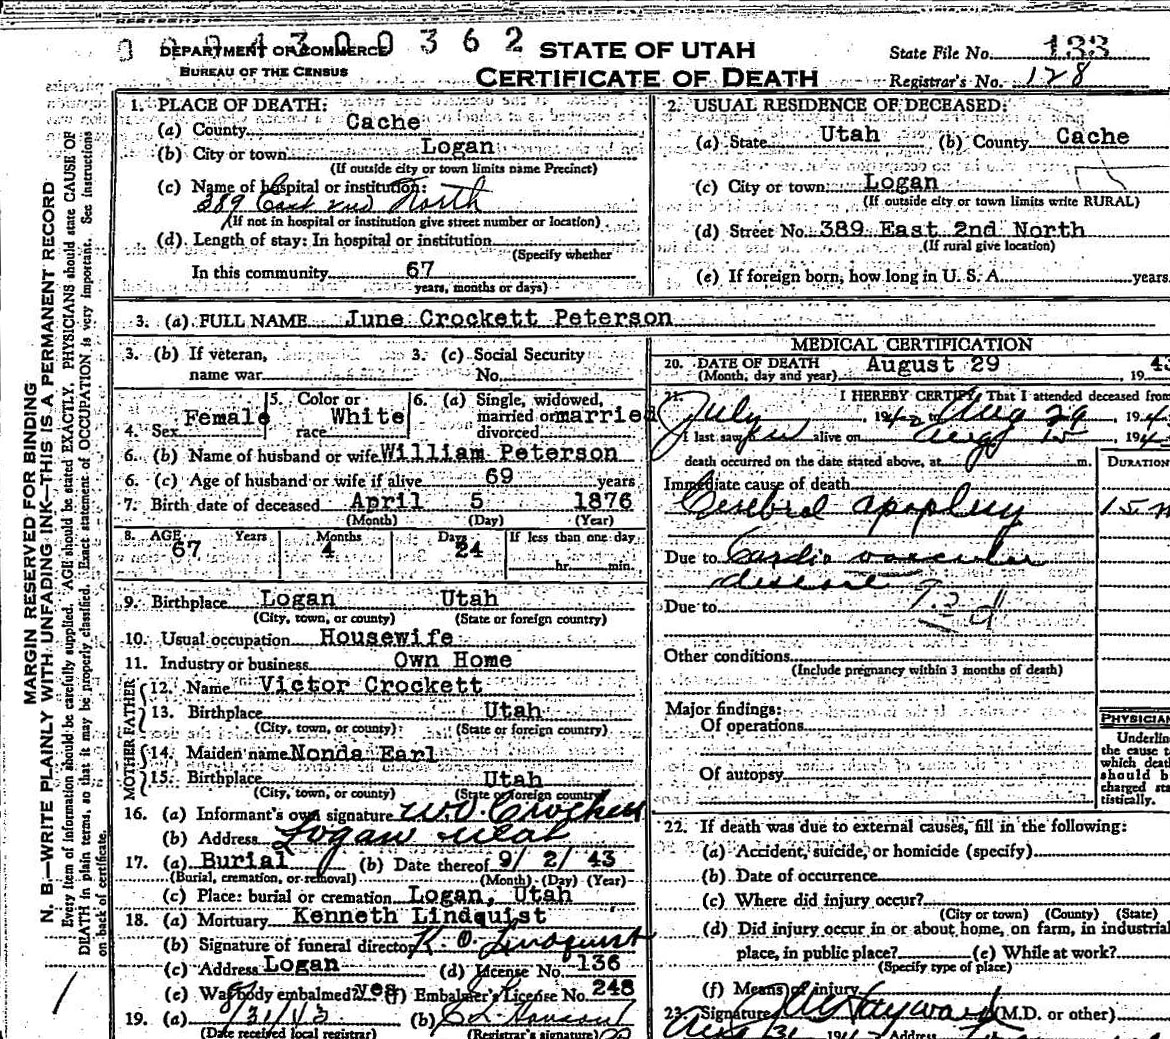 0 0 4 3 0 0 3 6 2
DEPARTMENT OF COMMERCE
BUREAU OF THE CENSUS
STATE OF UTAH
CERTIFICATE OF DEATH
State File No. 133
Registrar's No. 128
MARGIN RESERVED FOR BINDING
N. B.—WRITE PLAINLY WITH UNFADING INK—THIS IS A PERMANENT RECORD
Every item of information should be carefully supplied. AGE should be stated EXACTLY. PHYSICIANS should state CAUSE OF
DEATH in plain terms, so that it may be properly classified. Exact statement of OCCUPATION is very important. See instructions
on back of certificate.
1. PLACE OF DEATH:
(a) County Cache
(b) City or town Logan
(If outside city or town limits name Precinct)
(c) Name of hospital or institution:
389 East 2nd North
(If not in hospital or institution give street number or location)
(d) Length of stay: In hospital or institution
(Specify whether
In this community 67
years, months or days)
2. USUAL RESIDENCE OF DECEASED:
(a) State Utah (b) County Cache
(c) City or town Logan
(If outside city or town limits write RURAL)
(d) Street No. 389 East 2nd North
(If rural give location)
(e) If foreign born, how long in U. S. A. years.
3. (a) FULL NAME June Crockett Peterson
3. (b) If veteran,
name war
3. (c) Social Security
No.
4. Sex Female
5. Color or
race White
6. (a) Single, widowed,
married or married
divorced
6. (b) Name of husband or wife William Peterson
6. (c) Age of husband or wife if alive 69 years
7. Birth date of deceased April 5 1876
(Month) (Day) (Year)
8. AGE Years Months Days If less than one day
67 4 24 hr. min.
9. Birthplace Logan Utah
(City, town, or county) (State or foreign country)
10. Usual occupation Housewife
11. Industry or business Own Home
FATHER
12. Name Victor Crockett
13. Birthplace Utah
(City, town, or county) (State or foreign country)
MOTHER
14. Maiden name Nonda Earl
15. Birthplace Utah
(City, town, or county) (State or foreign country)
16. (a) Informant's own signature W.V. Crockett
(b) Address Logan Utah
17. (a) Burial (b) Date thereof 9/ 2/ 43
(Burial, cremation, or removal) (Month) (Day) (Year)
(c) Place: burial or cremation Logan, Utah
18. (a) Mortuary Kenneth Lindquist
(b) Signature of funeral director K. O. Lindquist
(c) Address Logan (d) License No. 136
(e) Was body embalmed? yes (f) Embalmer's License No. 248
19. (a) 8/31/43 (b)
(Date received local registrar) (Registrar's signature)
MEDICAL CERTIFICATION
20. DATE OF DEATH August 29 43
(Month, day and year) 19
21. I HEREBY CERTIFY That I attended deceased from
July 1942 to Aug 29 194
I last saw alive on Aug 15 194
death occurred on the date stated above, at m.
DURATION
Immediate cause of death
Cerebral apoplexy 15
Due to Cardio vascular
disease
Due to
Other conditions
(Include pregnancy within 3 months of death)
Major findings:
Of operations
Of autopsy
PHYSICIAN
Underline
the cause
which death
should b
charged sta
tistically.
22. If death was due to external causes, fill in the following:
(a) Accident, suicide, or homicide (specify)
(b) Date of occurrence
(c) Where did injury occur?
(City or town) (County) (State)
(d) Did injury occur in or about home, on farm, in industrial
place, in public place? (e) While at work?
(Specify type of place)
(f) Means of injury
23. Signature Hayward (M.D. or other)
Aug 31 194 Address